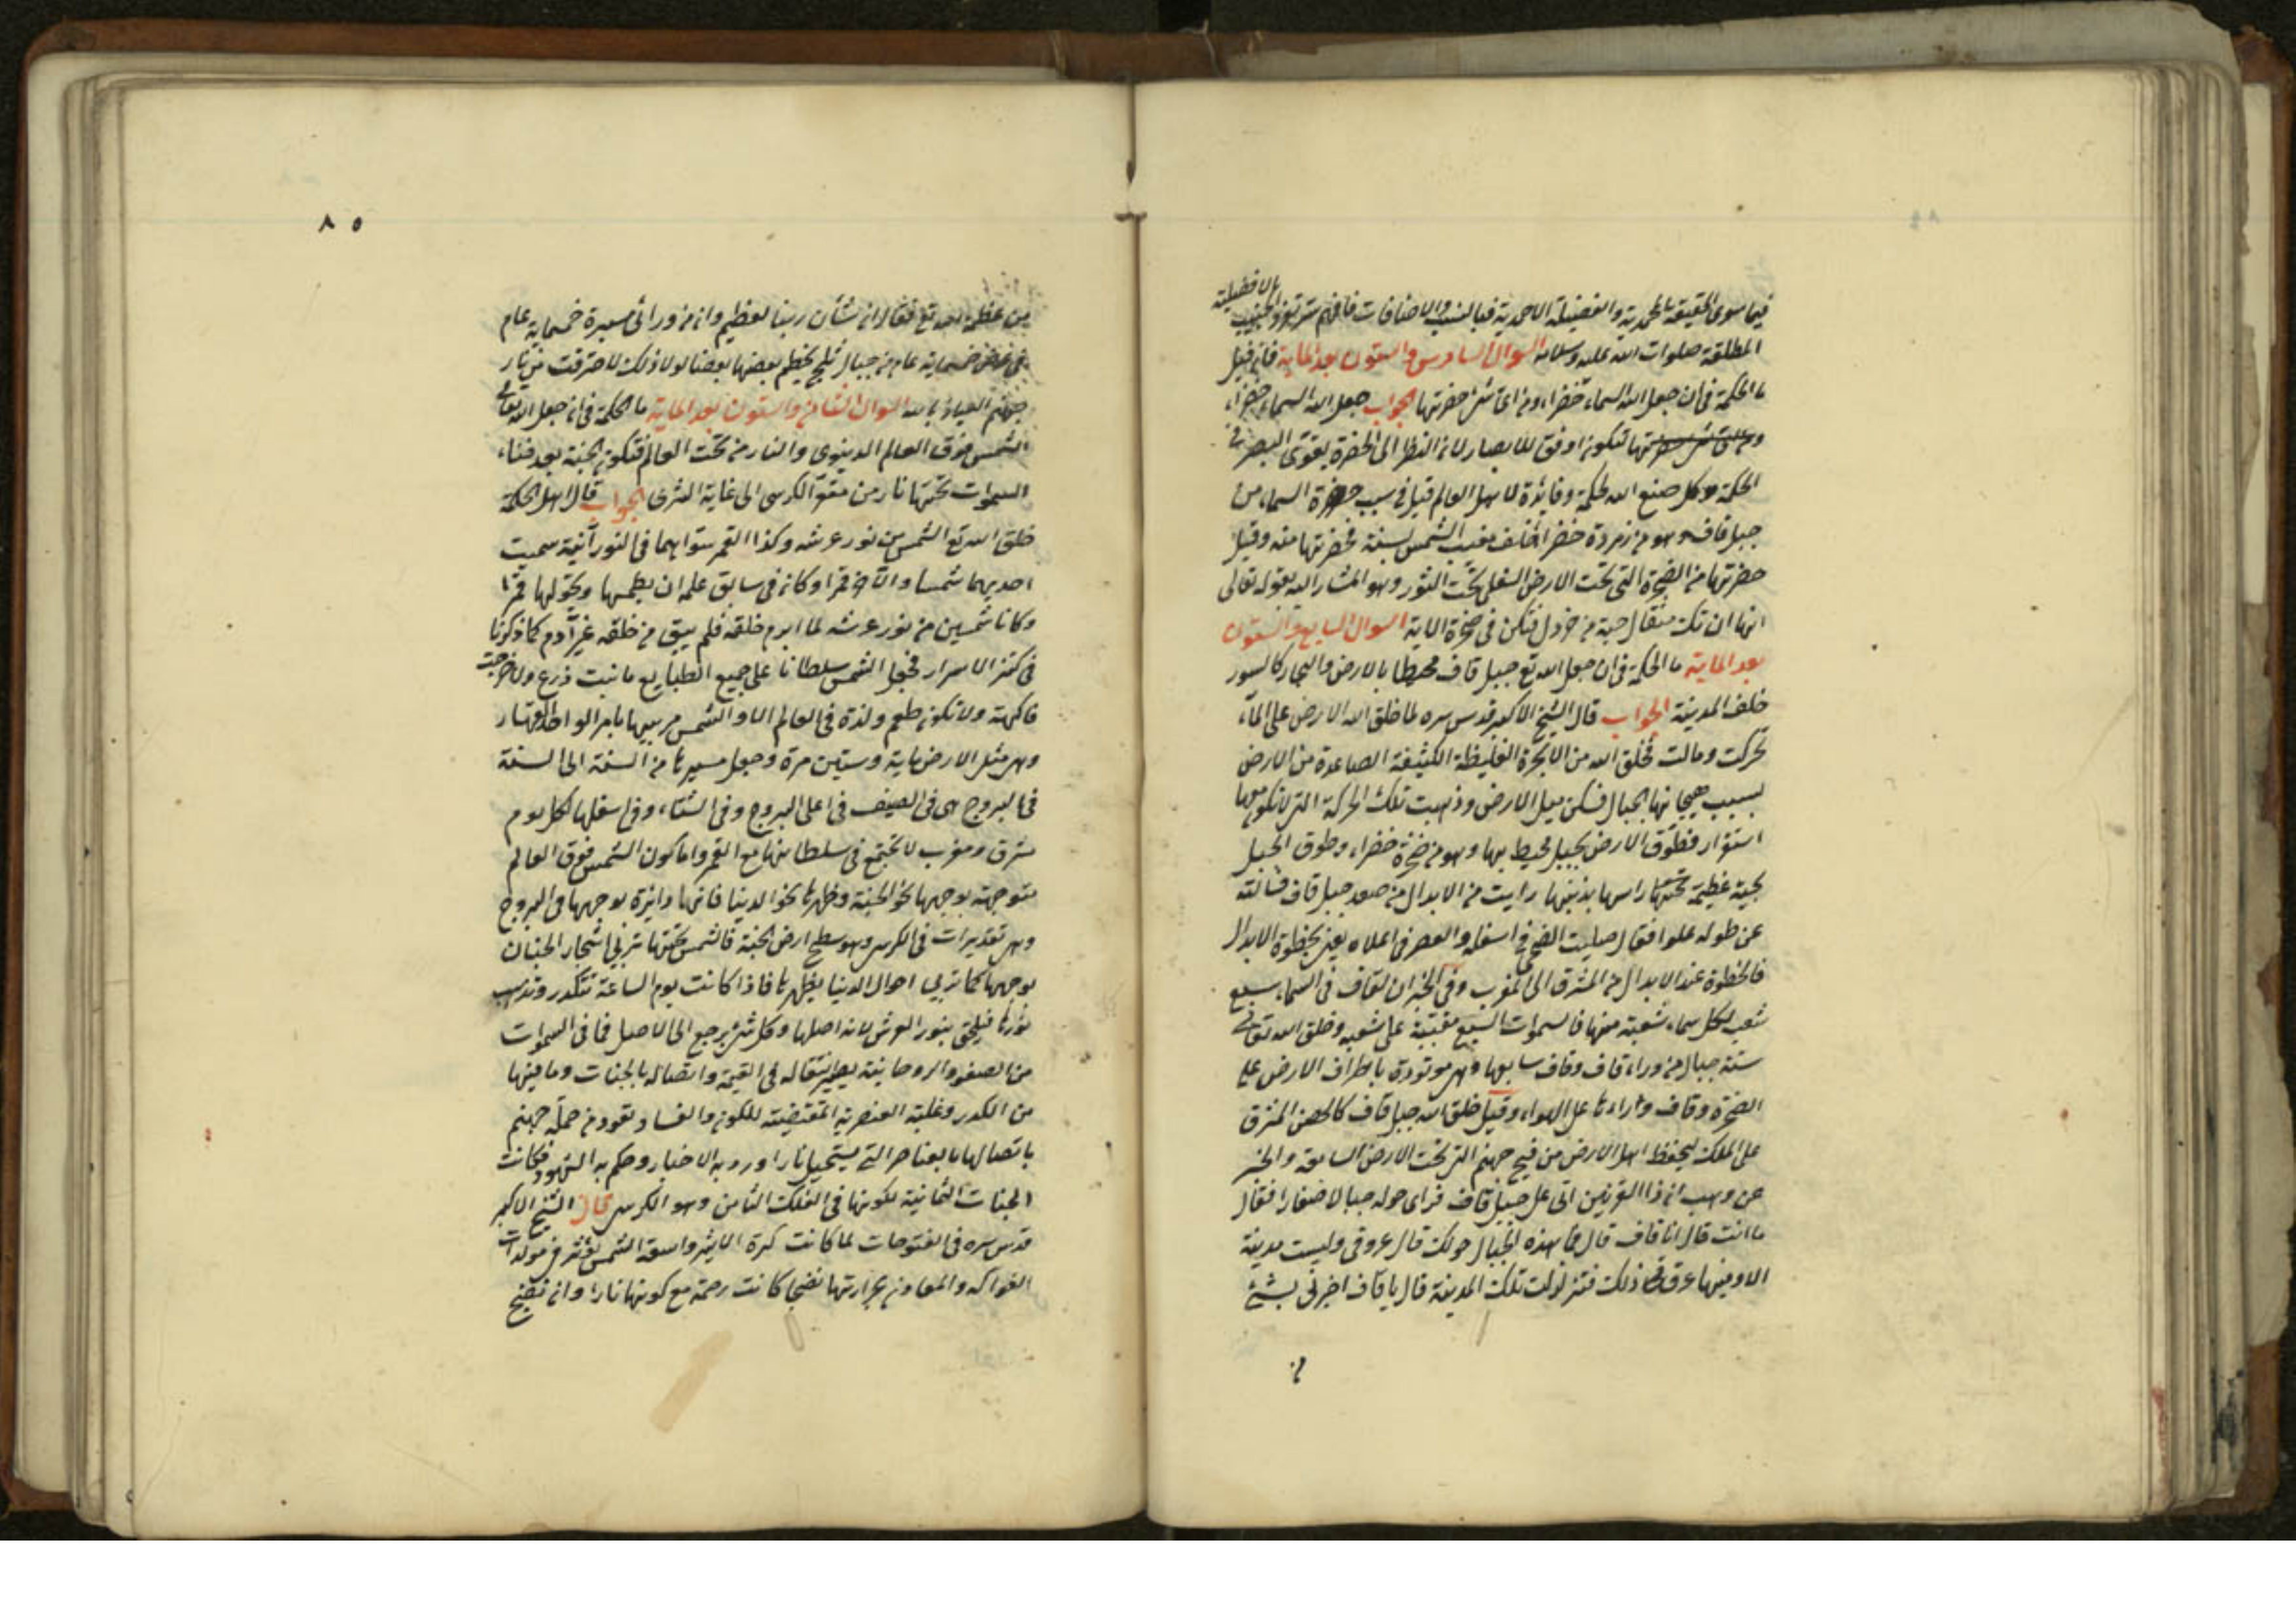 فيما سوى الحقيقة المحمدية والفضيلة الاحمدية فبالنسب والاضافات فافهم سر تفرد الحبيب
الافضلية
المطلقة صلوات الله عليه وسلامه السوال السادس والستون بعد الماية فان قيل
ما الحكمة في ان جعل الله السماء خضراء ومن اى شئ خضرتها الجواب جعل الله السماء خضراء
لتكون اوفق للابصار لان النظر الى الخضرة يقوى البصر في
الحكمة وكل صنع الله لحكمة وفائدة لاهل العالم قيل في سبب خضرة السماء من
جبل قاف وهو من زمردة خضراء خلف مغيب الشمس بسنة فخضرتها منه وقيل
خضرتها من الصخرة التي تحت الارض السفلى تحت الثور وهو المشار اليه بقوله تعالى
انها ان تك مثقال حبة من خردل فتكن في صخرة الاية السوال السابع والستون
بعد الماية ما الحكمة في ان جعل الله تع جبل قاف محيطا بالارض والبحار كالسور
خلف المدينة الجواب قال الشيخ الاكبر قدس سره لما خلق الله الارض على الماء
تحركت ومالت فخلق الله من الابخرة الغليظة الكثيفة الصاعدة من الارض
بسبب هيجانها الجبال فسكن ميل الارض وذهبت تلك الحركة التي لا تكون معها
استقرار فطوق الارض بجبل محيط بها وهو من صخرة خضراء وطوق الجبل
بحية عظيمة تحتها راسها بذنبها رايت من الابدال من صعد جبل قاف فسالته
عن طوله علوا فقال صليت الضحى في اسفله والعصر في اعلاه يعنى بخطوة الابدال
فالخطوة عند الابدال من المشرق الى المغرب وفي الخبر ان لقاف في السماء سبع
شعب لكل سماء شعبة منها فالسموات السبع مقببة على شعبه وخلق الله تعالى
ستة جبال من وراء قاف وقاف سابعها وهي موتودة باطراف الارض على
الصخرة وقاف وراءها على الهواء وقيل خلق الله جبل قاف كالحصن المشرق
على الملك ليحفظ اهل الارض من فيح جهنم التي تحت الارض السابعة والخبر
عن وهب ان ذا القرنين اتى على جبل قاف فراى حوله جبالا صغارا فقال
ما انت قال انا قاف قال فما هذه الجبال حولك قال عروقى وليست مدينة
الا وفيها عرق من ذلك فتزلزلت تلك المدينة قال يا قاف اخبرنى بشئ
من
٨٥
من عظمة الله تع فقال ان شأن ربنا لعظيم وان من ورائى مسيرة خمسماية عام
في عرض خمسماية عام من جبال ثلج يحطم بعضها بعضا لولا ذلك لاحترقت من نار
جهنم العياذ بالله السوال الثامن والستون بعد الماية ما الحكمة في ان جعل الله تعالى
الشمس فوق العالم الدنيوى والنار من تحت العالم فتكون الجنة بعد فناء
السموات تحتها نار من مقعر الكرسى الى غاية الثرى الجواب قال اهل الحكمة
خلق الله تع الشمس من نور عرشه وكذا القمر سواهما في النورانية سميت
احديهما شمسا والاخر قمرا وكان في سابق علمه ان يطمسها ويحولها قمرا
وكانا شمسين من نور عرشه لما ابرم خلقه فلم يبق من خلقه غير آدم كما ذكرنا
في كنز الاسرار فجعل الشمس سلطانا على جميع الطبايع ما نبت زرع ولا خرجت
فاكهة ولا تكون طعم ولذة في العالم الا والشمس مربيها بامر الواحد القهار
وهي مثل الارض ماية وستين مرة وجعل مسيرها من السنة الى السنة
في البروج هي في الصيف في اعلى البروج وفي الشتاء وفي اسفلها لكل يوم
مشرق ومغرب لا تجتمع في سلطانها مع القمر واما كون الشمس فوق العالم
متوجهة بوجهها نحو الجنة وظهرها نحو الدنيا فانها دايرة بوجهها في البروج
وهي تقديرات في الكرسى وهو سطح ارض الجنة فالشمس تحتها تربى اشجار الجنان
بوجهها كما تربى احوال الدنيا بظهرها فاذا كانت يوم الساعة تتكدر وتذهب
نورها فيلحق بنور العرش لانه اصلها وكل شئ يرجع الى الاصل فما في السموات
من الصفو والروحانية انتقاله في القيمة واتصاله بالجنات وما فيها
من الكدر وغلبة العنصرية المقتضية للكون والفساد تعود من جملة جهنم
باتصالها بالعناصر التي يستحيل نارا ورد به الاخبار وحكم به الشهود فكانت
الجنات الثمانية لكونها في الفلك الثامن وهو الكرسى قال الشيخ الاكبر
قدس سره في الفتوحات لما كانت كرة الاثير واسعة الشمس تؤثر في مولدات
الفواكه والمعادن بحرارتها نضجا كانت رحمة مع كونها نارا وانه نضج